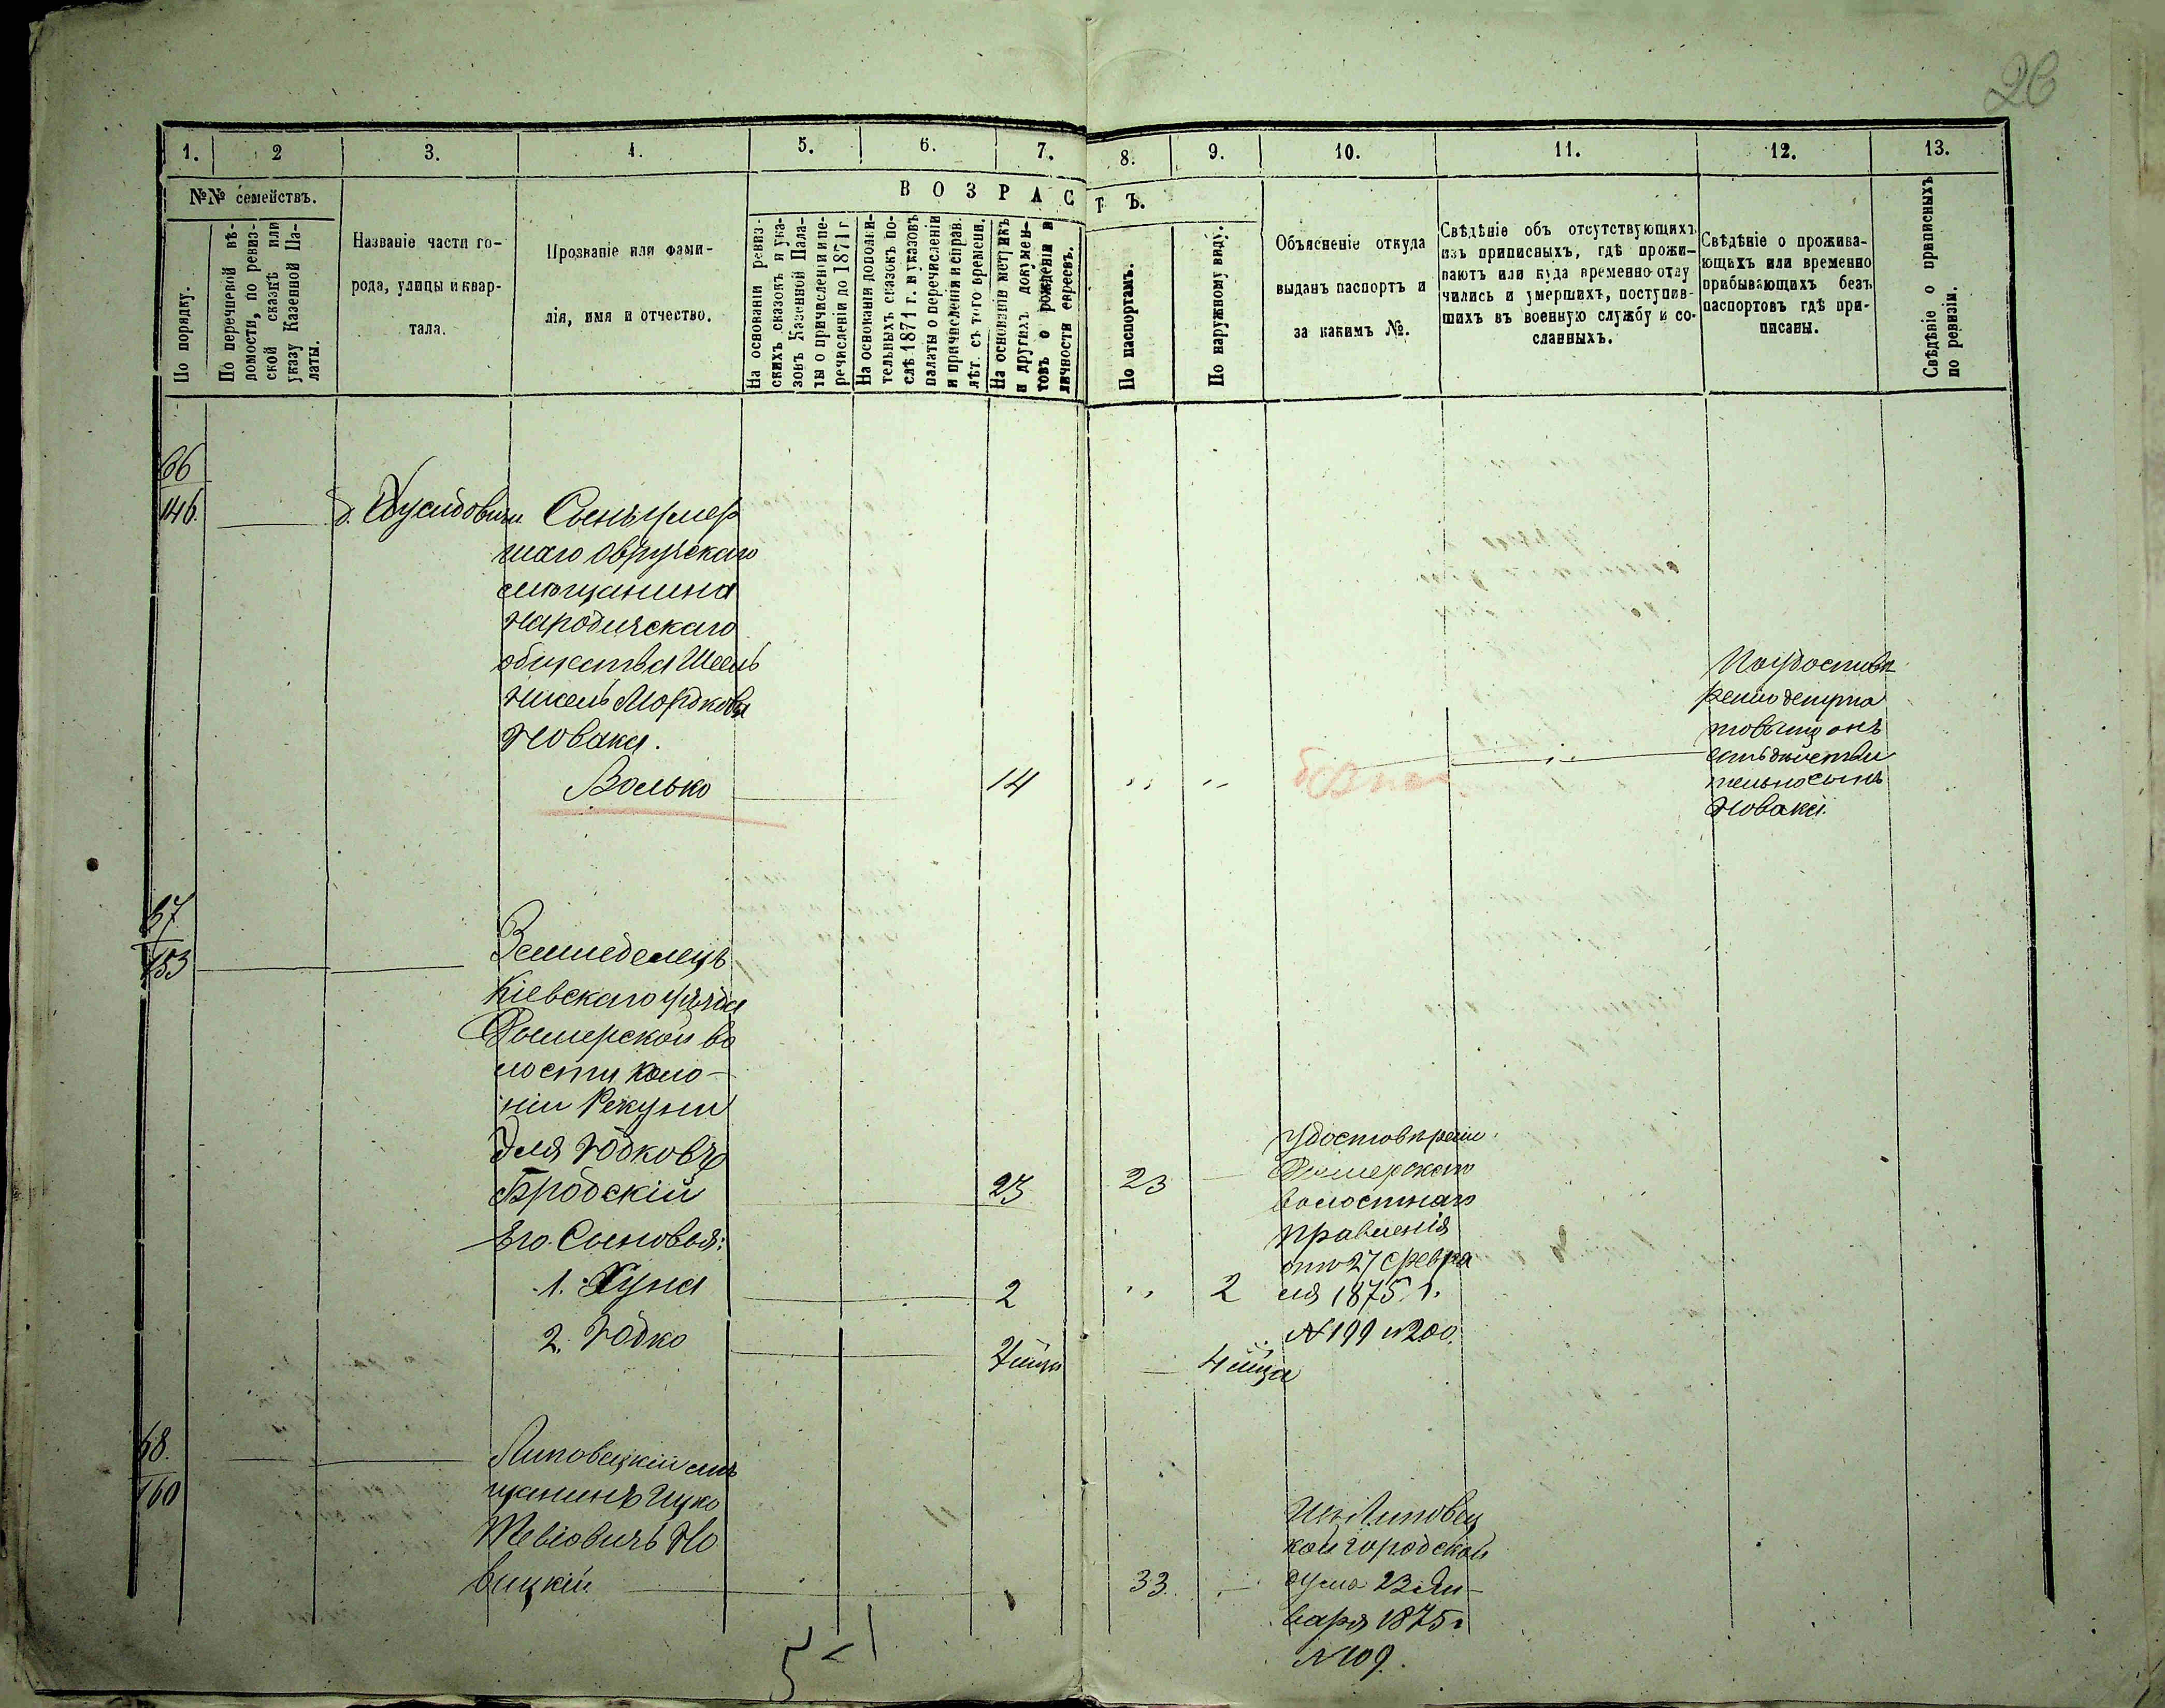 26
1. 2 3. 4. 5. 6. 7. 8. 9. 10. 11. 12. 13.
№№ семействъ.
По порядку.
По перечневой вѣ-
домости, по ревиз-
ской сказкѣ или
указу Казенной Па-
латы.
Названіе части го-
рода, улицы и квар-
тала.
Прозваніе или фами-
лія, имя и отчество.
ВОЗРАСТЪ.
На основаніи ревиз-
скихъ сказокъ и ука-
зовъ Казенной Пала-
ты о причисленіи и пе-
речисленіи до 1871 г.
На основаніи дополни-
тельныхъ сказокъ по-
слѣ 1871 г. и указовъ
палаты о перечисленіи
и причисленіи и справ.
лѣт. съ того времени.
На основаніи метрикъ
и другихъ докумен-
товъ о рожденіи и
личности евреевъ.
По паспортамъ.
По наружному виду.
Объясненіе откуда
выданъ паспортъ и
за какимъ №.
Свѣдѣніе объ отсутствующихъ
изъ приписныхъ, гдѣ прожи-
ваютъ или куда временно отлу
чились и умершихъ, поступив-
шихъ въ военную службу и со-
сланныхъ.
Свѣдѣніе о прожива-
ющихъ или временно
прибывающихъ безъ
паспортовъ гдѣ при-
писаны.
Свѣдѣніе о приписныхъ
по ревизіи.
66
146.
д.
Сынъ умер
шаго Овручскаго
мѣщанина
Народичскаго
общества
Мордкова
Новака.
Волько 14
дѣйстви
тельно сынъ
Новака.
67
153
Земледелецъ
Кіевскаго уѣзда
Дымерской во
лости коло-
ніи Рекуни
Іодковъ
Бродскій 23 23
Его Сыновья:
1. Хуна 2 2
2. Іодко 4 мѣца
удостовѣрені
Дымерскаго
волостнаго
правленія
отъ 27 февра
ля 1875 г.
№ 199 и 200.
68.
160
Липовецкій мѣ
щанинъ Ицко
Тевіовичъ Но
вицкій 33.
Изъ Липовец
кой городской
думы 23 Ян-
варя 1875 г
№ 109.